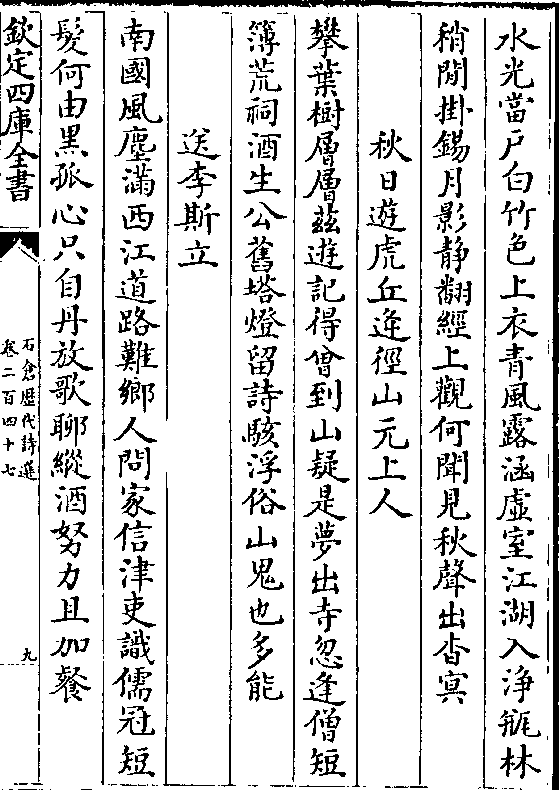 水光當戶白竹色上衣青風露涵虛室江湖入淨瓶林
稍閒掛錫月影静翻經上觀何聞見秋聲出杳㝠
秋日遊虎丘逢徑山元上人
攀葉樹層層茲遊記得曾到山疑是夢出寺忽逢僧短
簿荒祠酒生公舊塔燈留詩駭浮俗山鬼也多能
送李斯立
南國風塵滿西江道路難鄉人問家信津吏識儒冠短
髮何由黒孤心只自丹放歌聊縱酒努力且加餐
欽定四庫全書
石倉歴代詩選
卷二百四十七
九